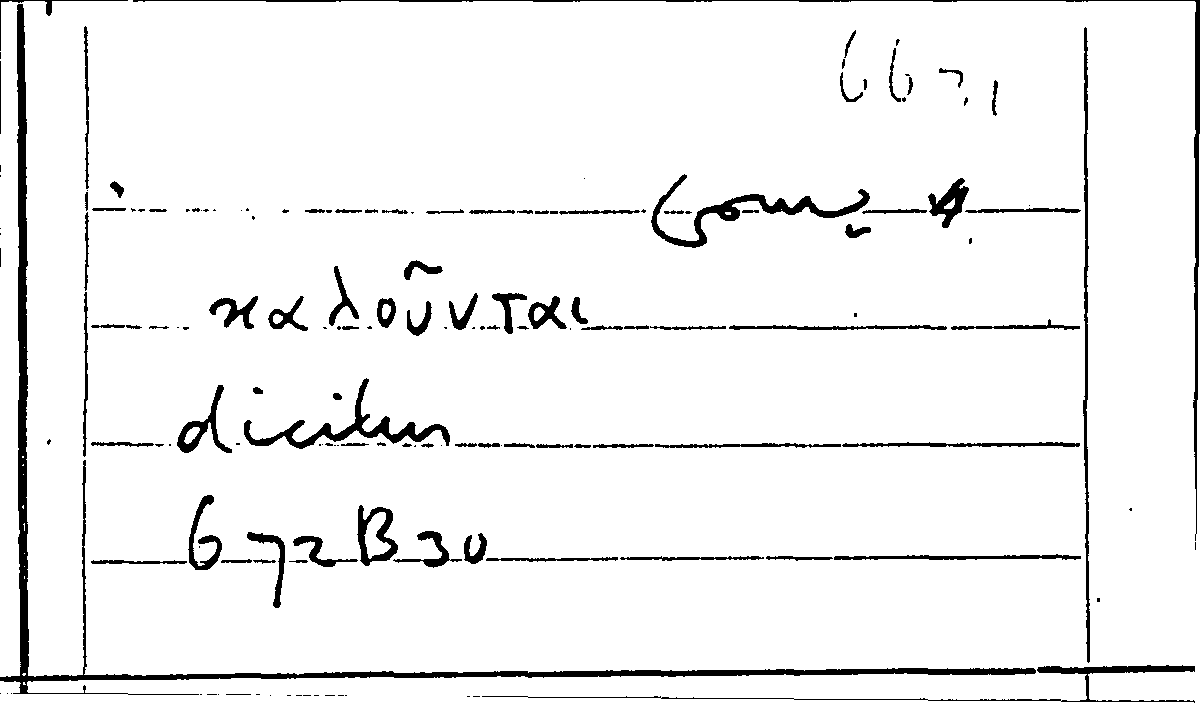 667.1
ϰαλοῦνται
dicitur
672B30